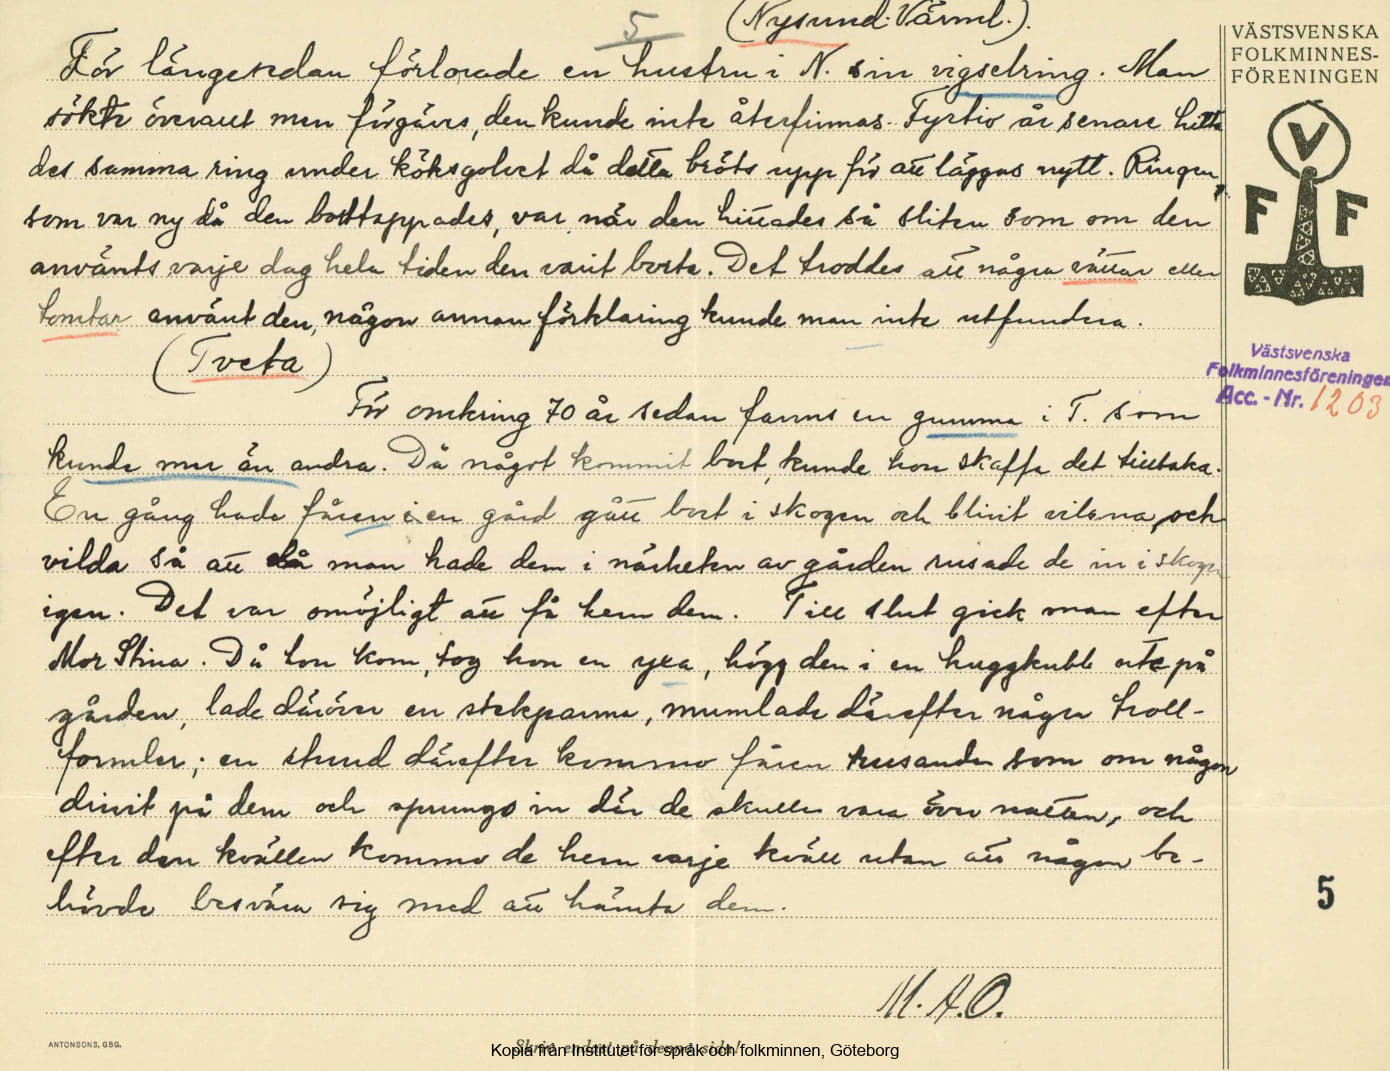 5
(Nysund. Värml.).
För längesedan förlorade en hustru i N. sin vigselring. Man
sökte överallt men förgäves, den kunde inte återfinnas. Fyrtio år senare hitta
des samma ring under köksgolvet då detta bröts upp för att läggas nytt. Ringen,
som var ny då den borttappades, var när den hittades så sliten som om den
använts varje dag hela tiden den varit borta. Det troddes att några vättar eller
tomtar använt den, någon annan förklaring kunde man inte utfundera.
(Tveta)
För omkring 70 år sedan fanns en gumma i T. som
kunde mer än andra. Då något kommit bort, kunde hon skaffa det tillbaka.
En gång hade fåren i en gård gått bort i skogen och blivit vilsna, och
vilda så att då man hade dem i närheten av gården rusade de in i skogen
igen. Det var omöjligt att få hem dem. Till slut gick man efter
Mor Stina. Då hon kom, tog hon en yxa, högg den i en huggkubb ute på
gården, lade däröver en stekpanna, mumlade därefter några troll-
formler; en stund därefter kommo fåren rusande som om någon
drivit på dem och sprungo in där de skulle vara över natten, och
efter den kvällen kommo de hem varje kväll utan att någon be-
hövde besvära sig med att hämta dem.
M.A.O.
VÄSTSVENSKA
FOLKMINNES-
FÖRENINGEN
V
F F
Västsvenska
Folkminnesföreningen
Acc. - Nr. 1203
5
ANTONSONS, GBG.
Skriv endast på denna sida!
Kopia från Institutet för språk och folkminnen, Göteborg